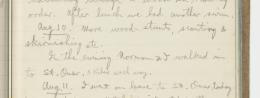 order. After lunch we had another swim.
Aug. 10. More wood stunts, scouting &
skirmishing etc.
In the evening Norman & I walked in
to St. Omer, 3 kilos each way.
Aug. 11. I went on leave to St. Omer today